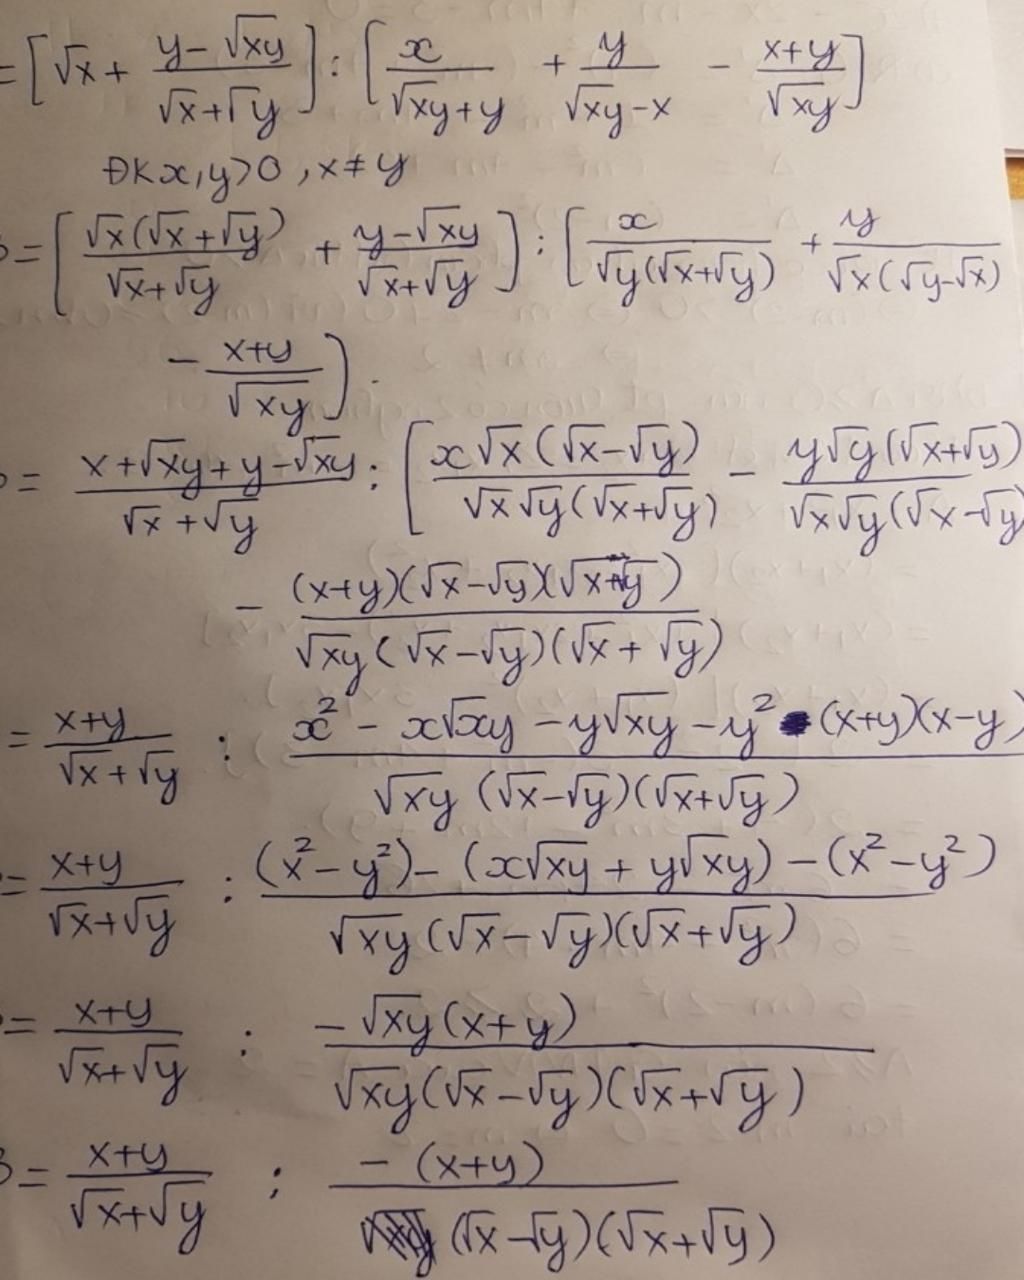 = [√x + (y - √xy)/(√x + √y)] : [x/(√xy + y) + y/(√xy - x) - (x+y)/√xy]
ĐK x, y > 0, x ≠ y
= [√x(√x + √y)/(√x + √y) + (y - √xy)/(√x + √y)] : [x/(√y(√x + √y)) + y/(√x(√y - √x))
- (x+y)/√xy].
= (x + √xy + y - √xy)/(√x + √y) : [x√x(√x - √y)/(√x√y(√x + √y)) - y√y(√x + √y)/(√x√y(√x - √y)
- (x+y)(√x - √y)(√x + √y)/(√xy(√x - √y)(√x + √y))
= (x+y)/(√x + √y) : (x² - x√xy - y√xy - y² (x+y)(x-y))/(√xy(√x - √y)(√x + √y))
= (x+y)/(√x + √y) : ((x² - y²) - (x√xy + y√xy) - (x² - y²))/(√xy(√x - √y)(√x + √y))
= (x+y)/(√x + √y) : -√xy(x+y)/(√xy(√x - √y)(√x + √y))
= (x+y)/(√x + √y) : -(x+y)/((√x - √y)(√x + √y))